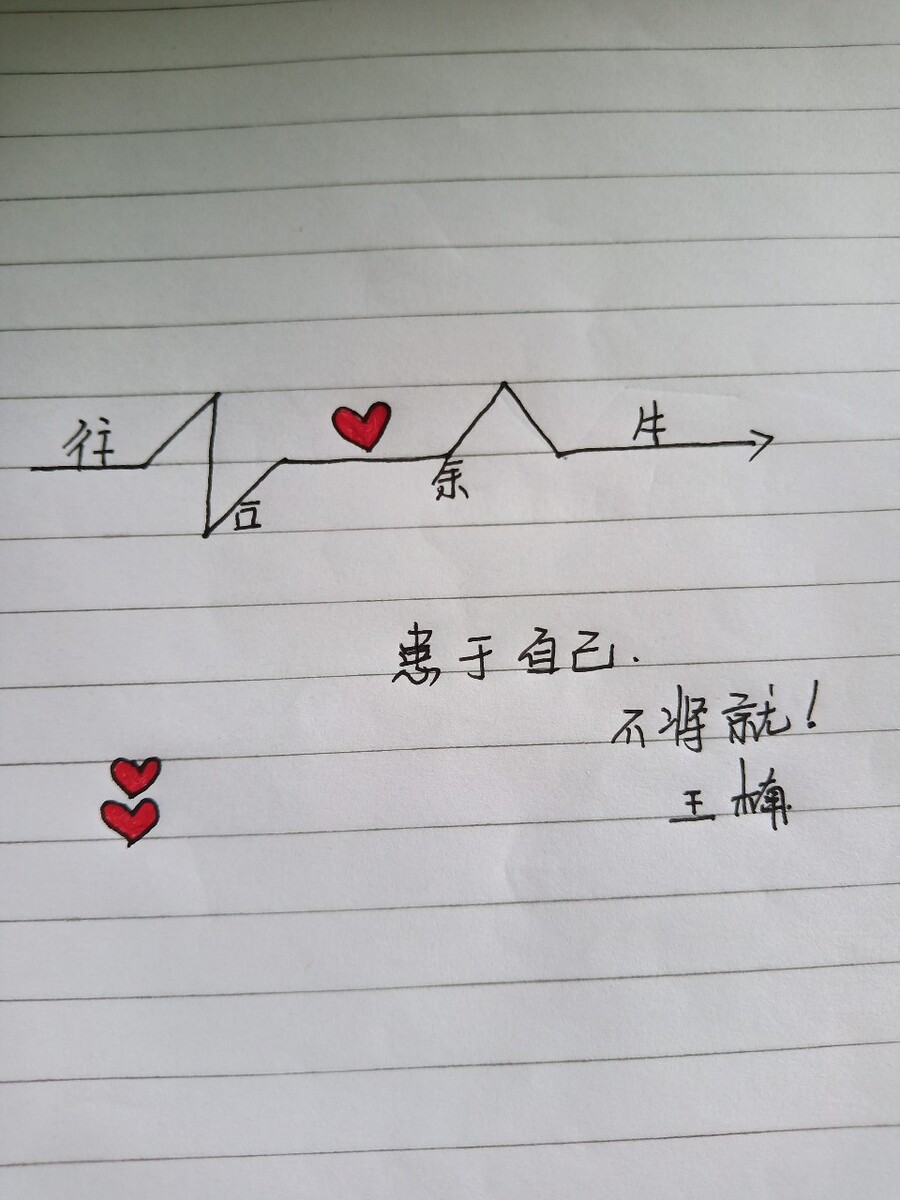 往后余生
患于自己.
不将就!
王楠